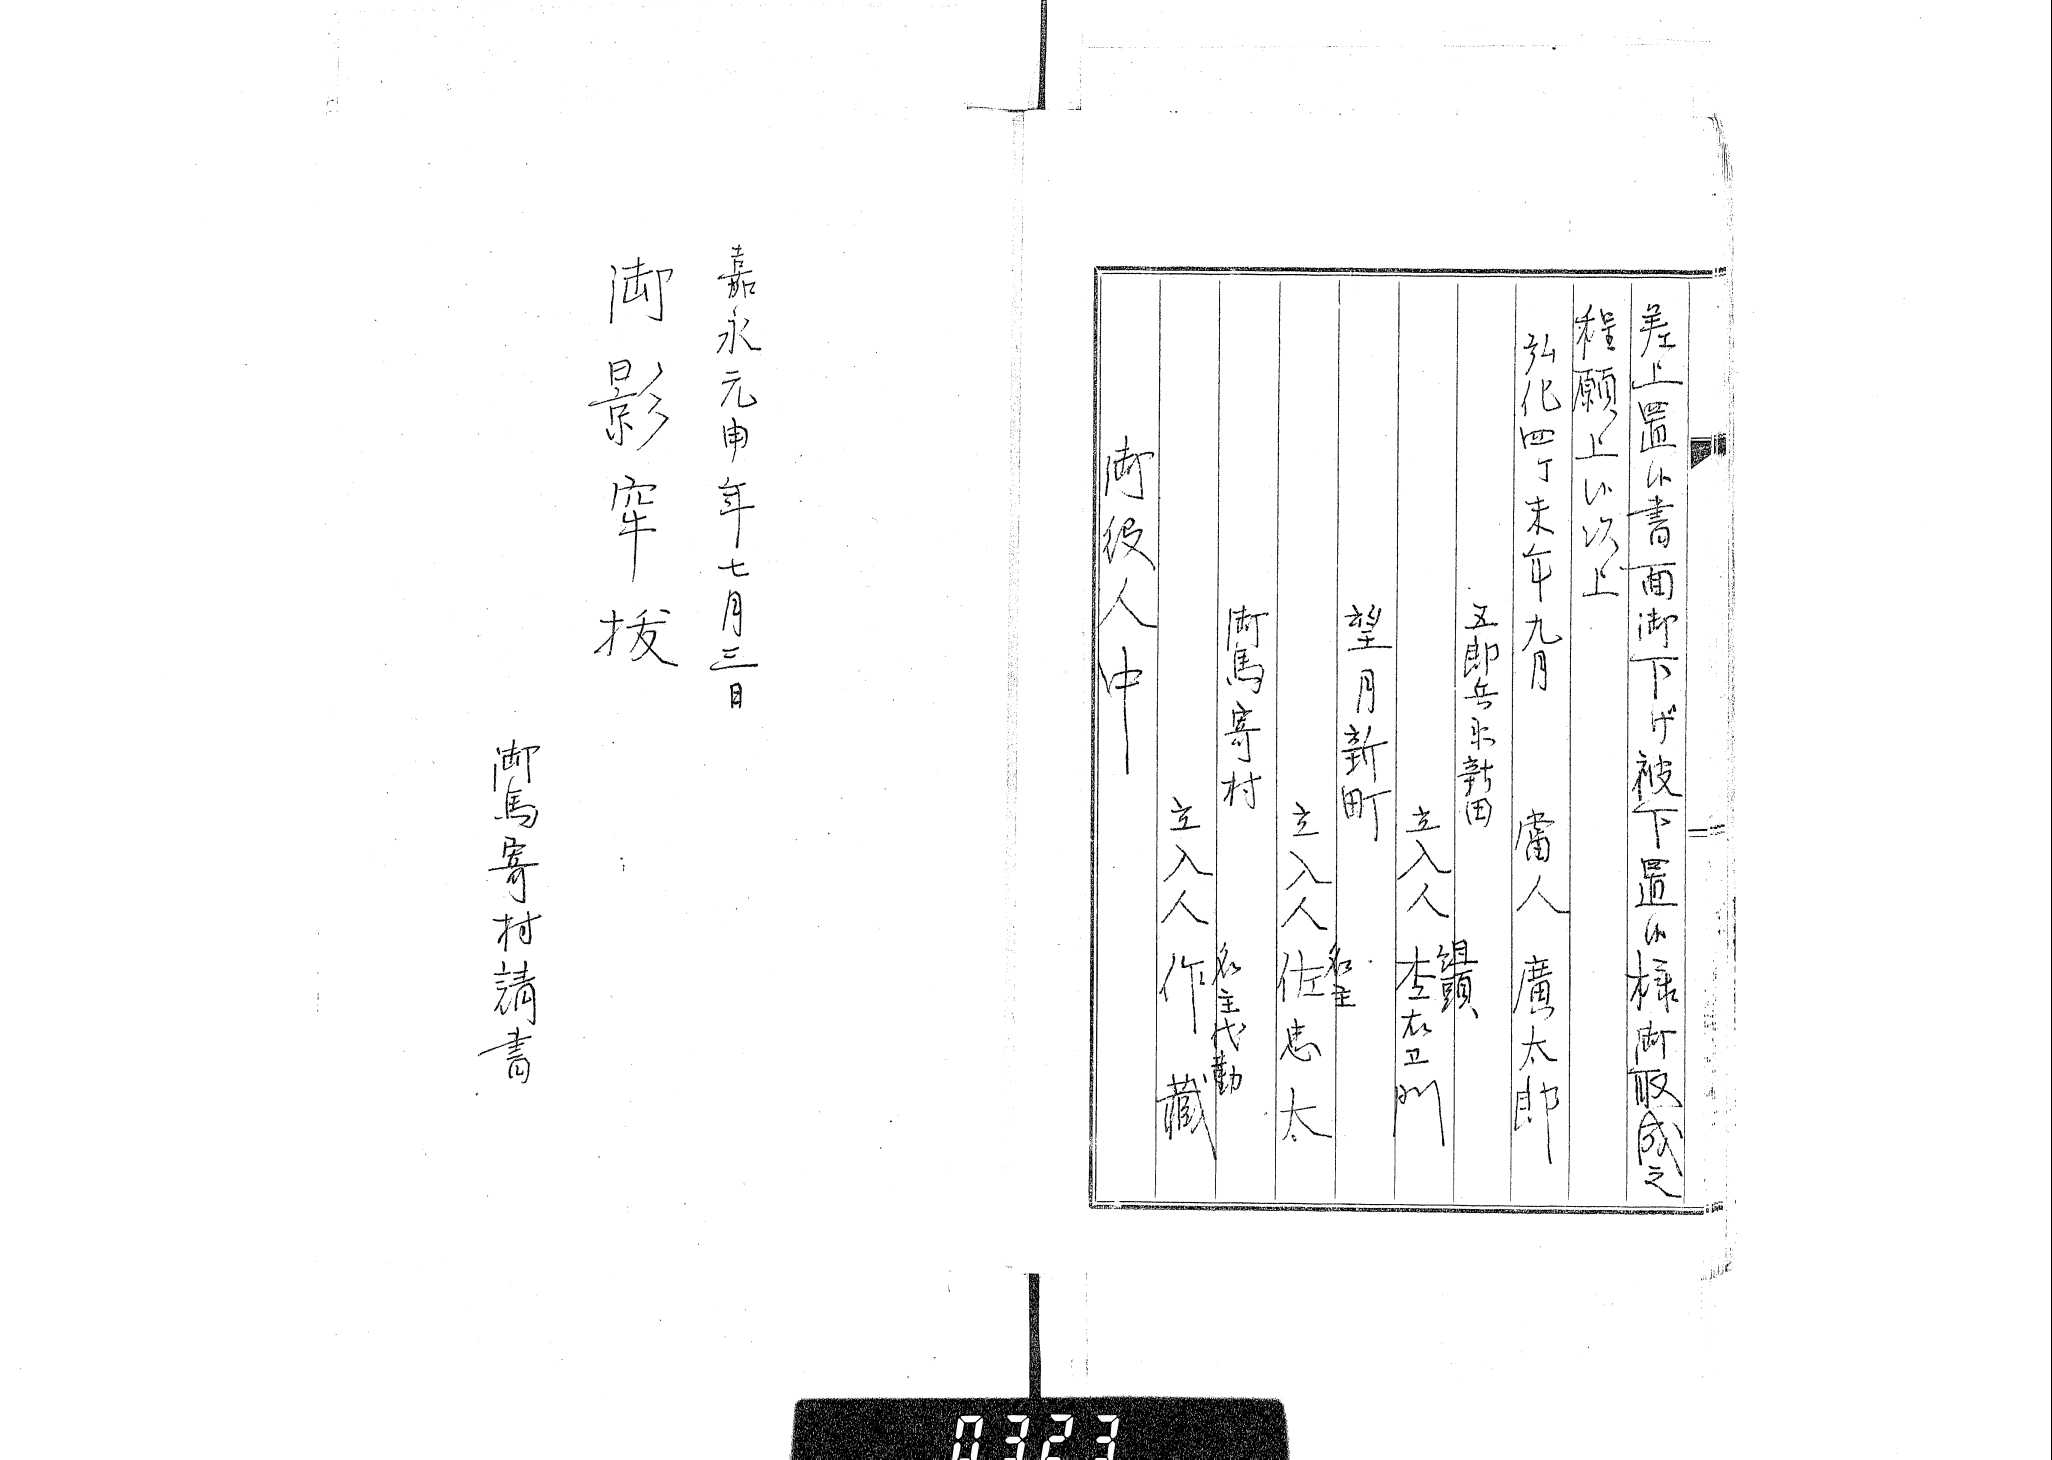 差上置候書面御下げ被下置候様御取成之
程願上候以上
弘化四丁未年九月　當人　廣太郎
五郎兵衛新田
組頭
立入人　杢右卫門
望月新町
名主
立入人　佐忠太
御馬寄村
名主代勤
立入人　作藏
御役人中
嘉永元申年七月三日
御影牢拔
御馬寄村請書
0323